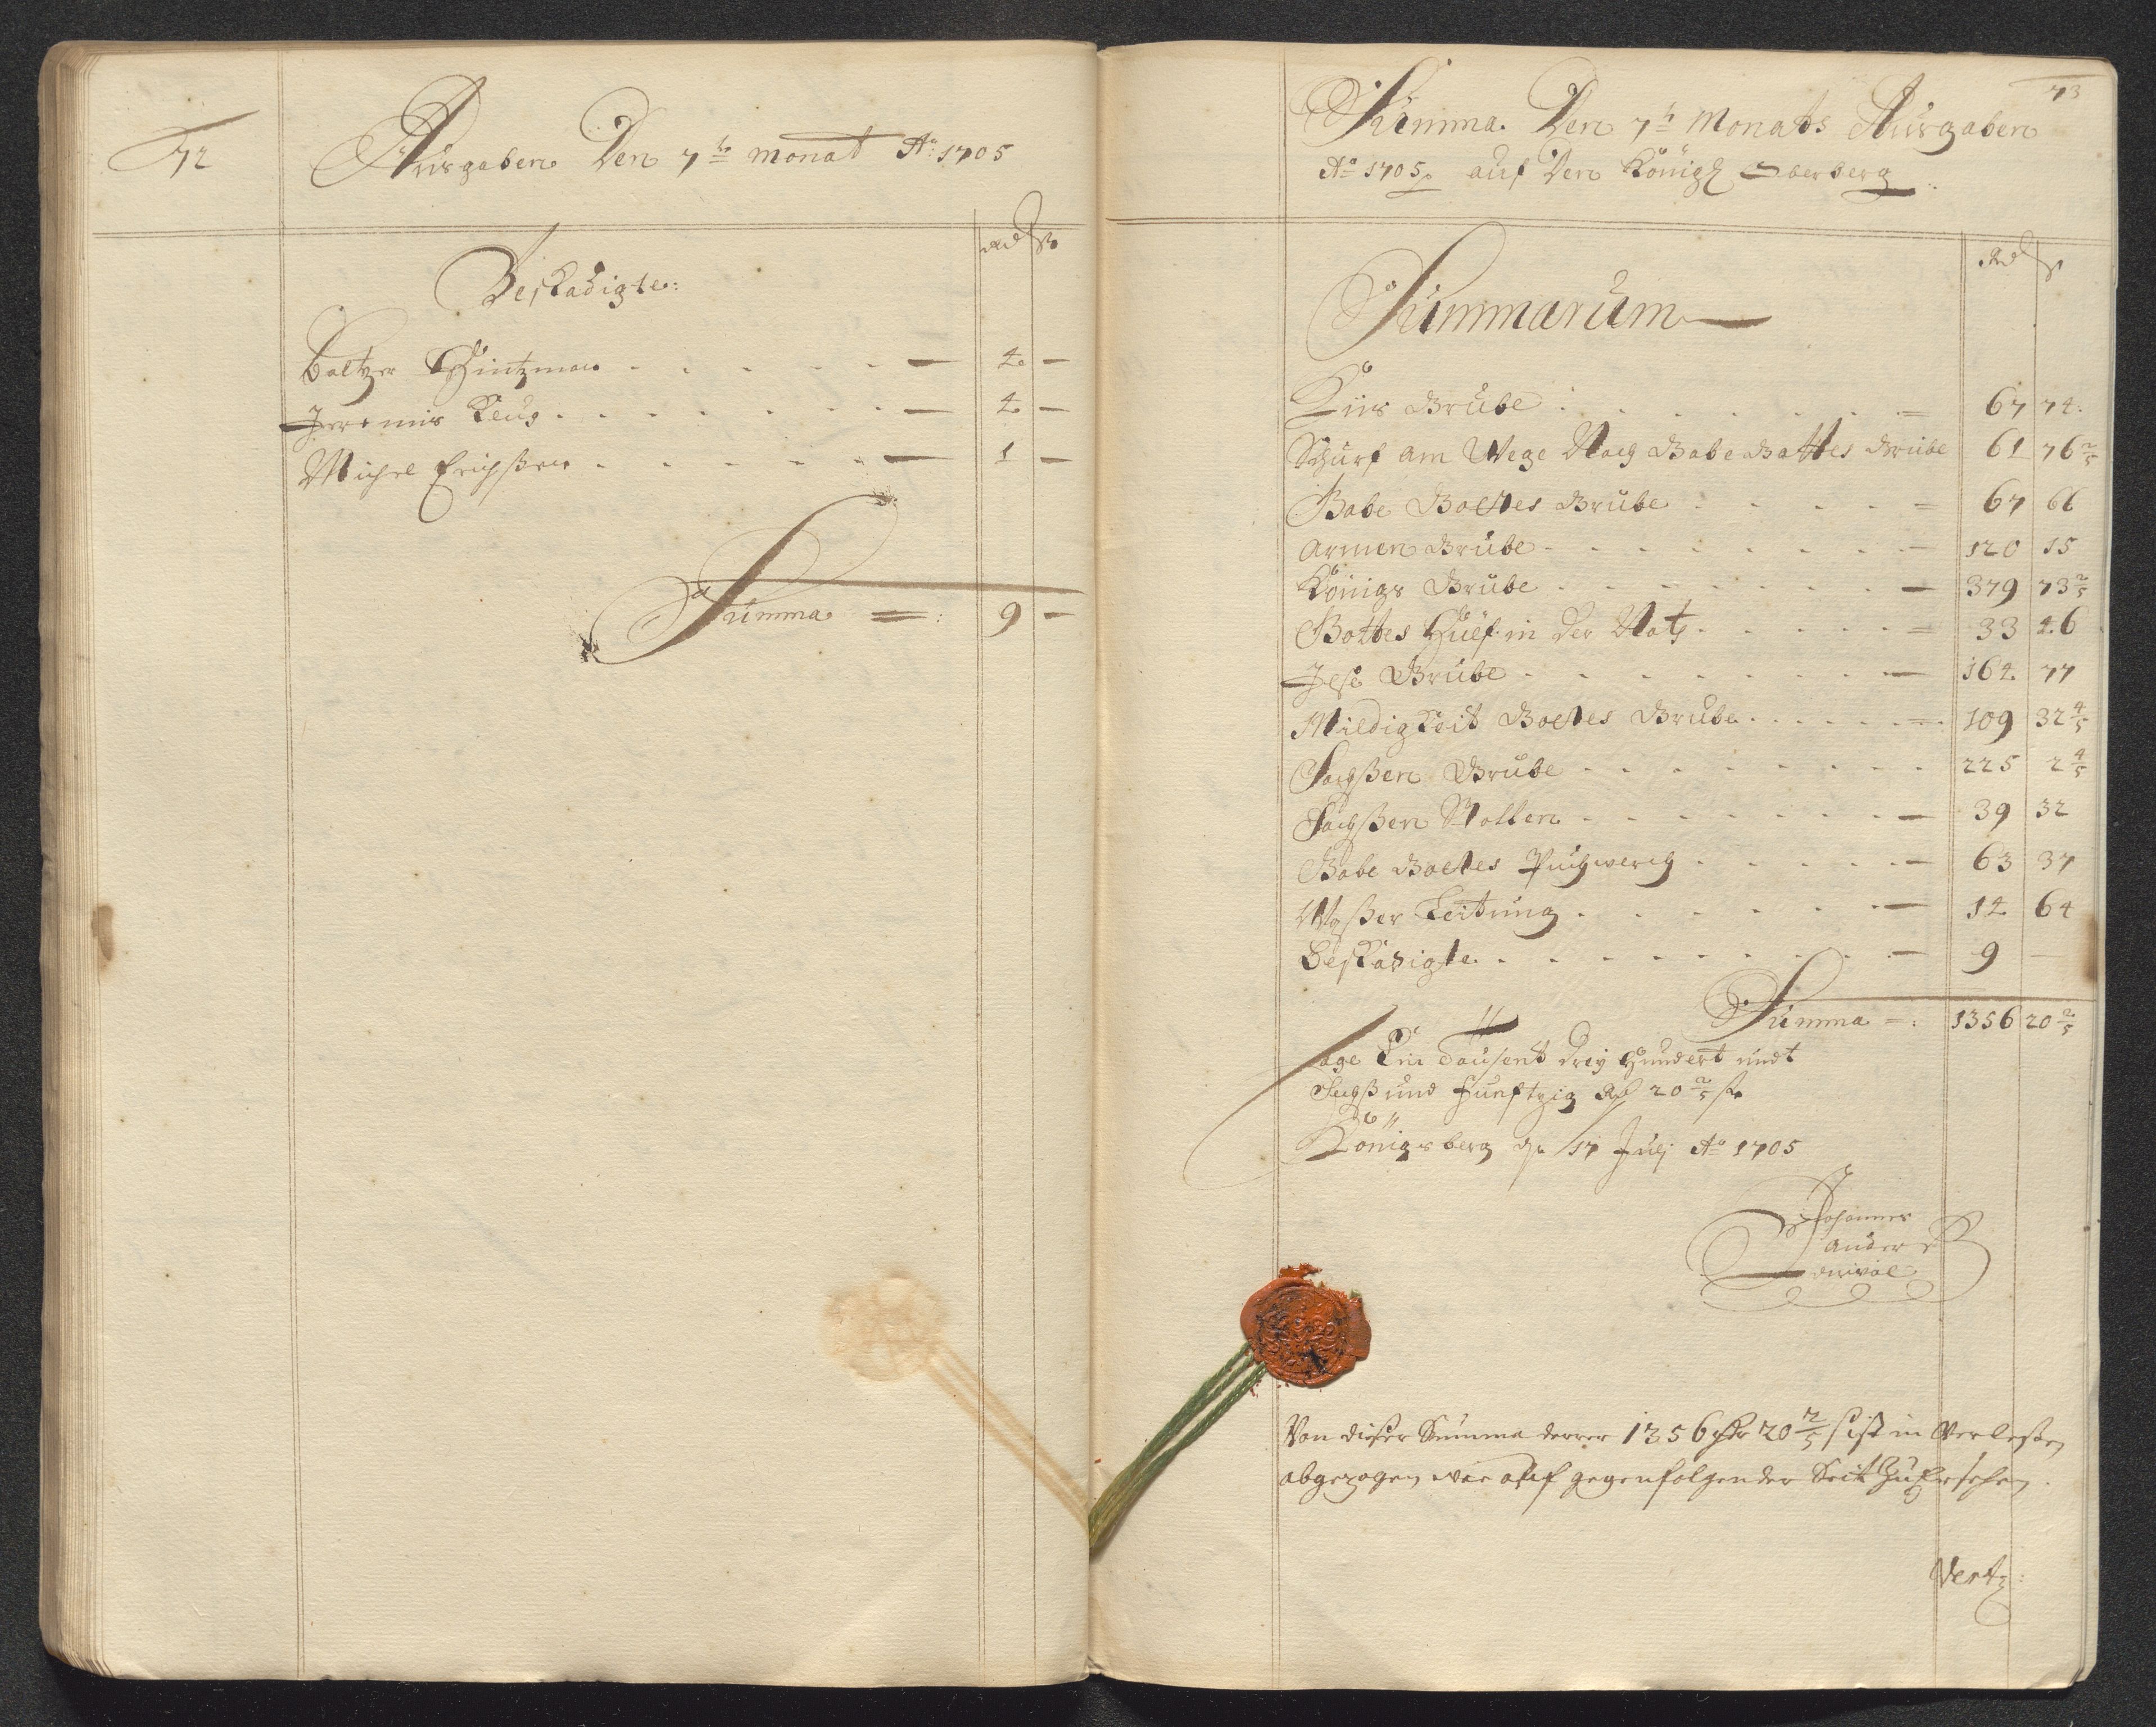 72
Ausgaben Den 7ts monat Ao: 1705
Rd ß
Beskadigte:
Baltzer Hintzman . . . . . — 4 —
Jeremis Keug . . . . . . — 4 —
Michel Erichßen . . . . . — 1 —
Summa =: 9 —
73
Summa Den 7ts Monats Ausgaben
Ao 1705 auf Den Königl Oberberg
Rd ß
Summarum
Kiis Grube . . . . . = 67 74
Schurf am Wege Nach Gabe Gottes Grube 61 76 2/5
Gabe Gottes Grube . . . . . = 67 66
Armen Grube . . . . . . — 120 15
Königs Grube . . . . . . — 379 73 2/5
Gottes Hülf in der Noth . . . . . = 33 46
Juls Grube . . . . . . — 164 77
Mildigkeit Gottes Grube . . . . . = 109 32 4/5
Sachßen Grube . . . . . . 225 2 4/5
Sachßen Stollen . . . . . . — 39 32
Gabe Gottes Puchwerch . . . . . — 63 37
Waßer Leitung . . . . . . — 14 64
Beskadigte . . . . . . — 9 —
Summa =: 1356 20 2/5
Sage Ein Tausent Drey Hundert undt
Sechß und Funftzig Rd 20 2/5 ß
Königsberg d. 17 July Ao 1705
Johannes
Von dieser Summa derer 1356 rdr 20 2/5 ß ist in Verlesen
abgezogen wie auf gegenfolgender Seit Zu Ersehen.
Verte: